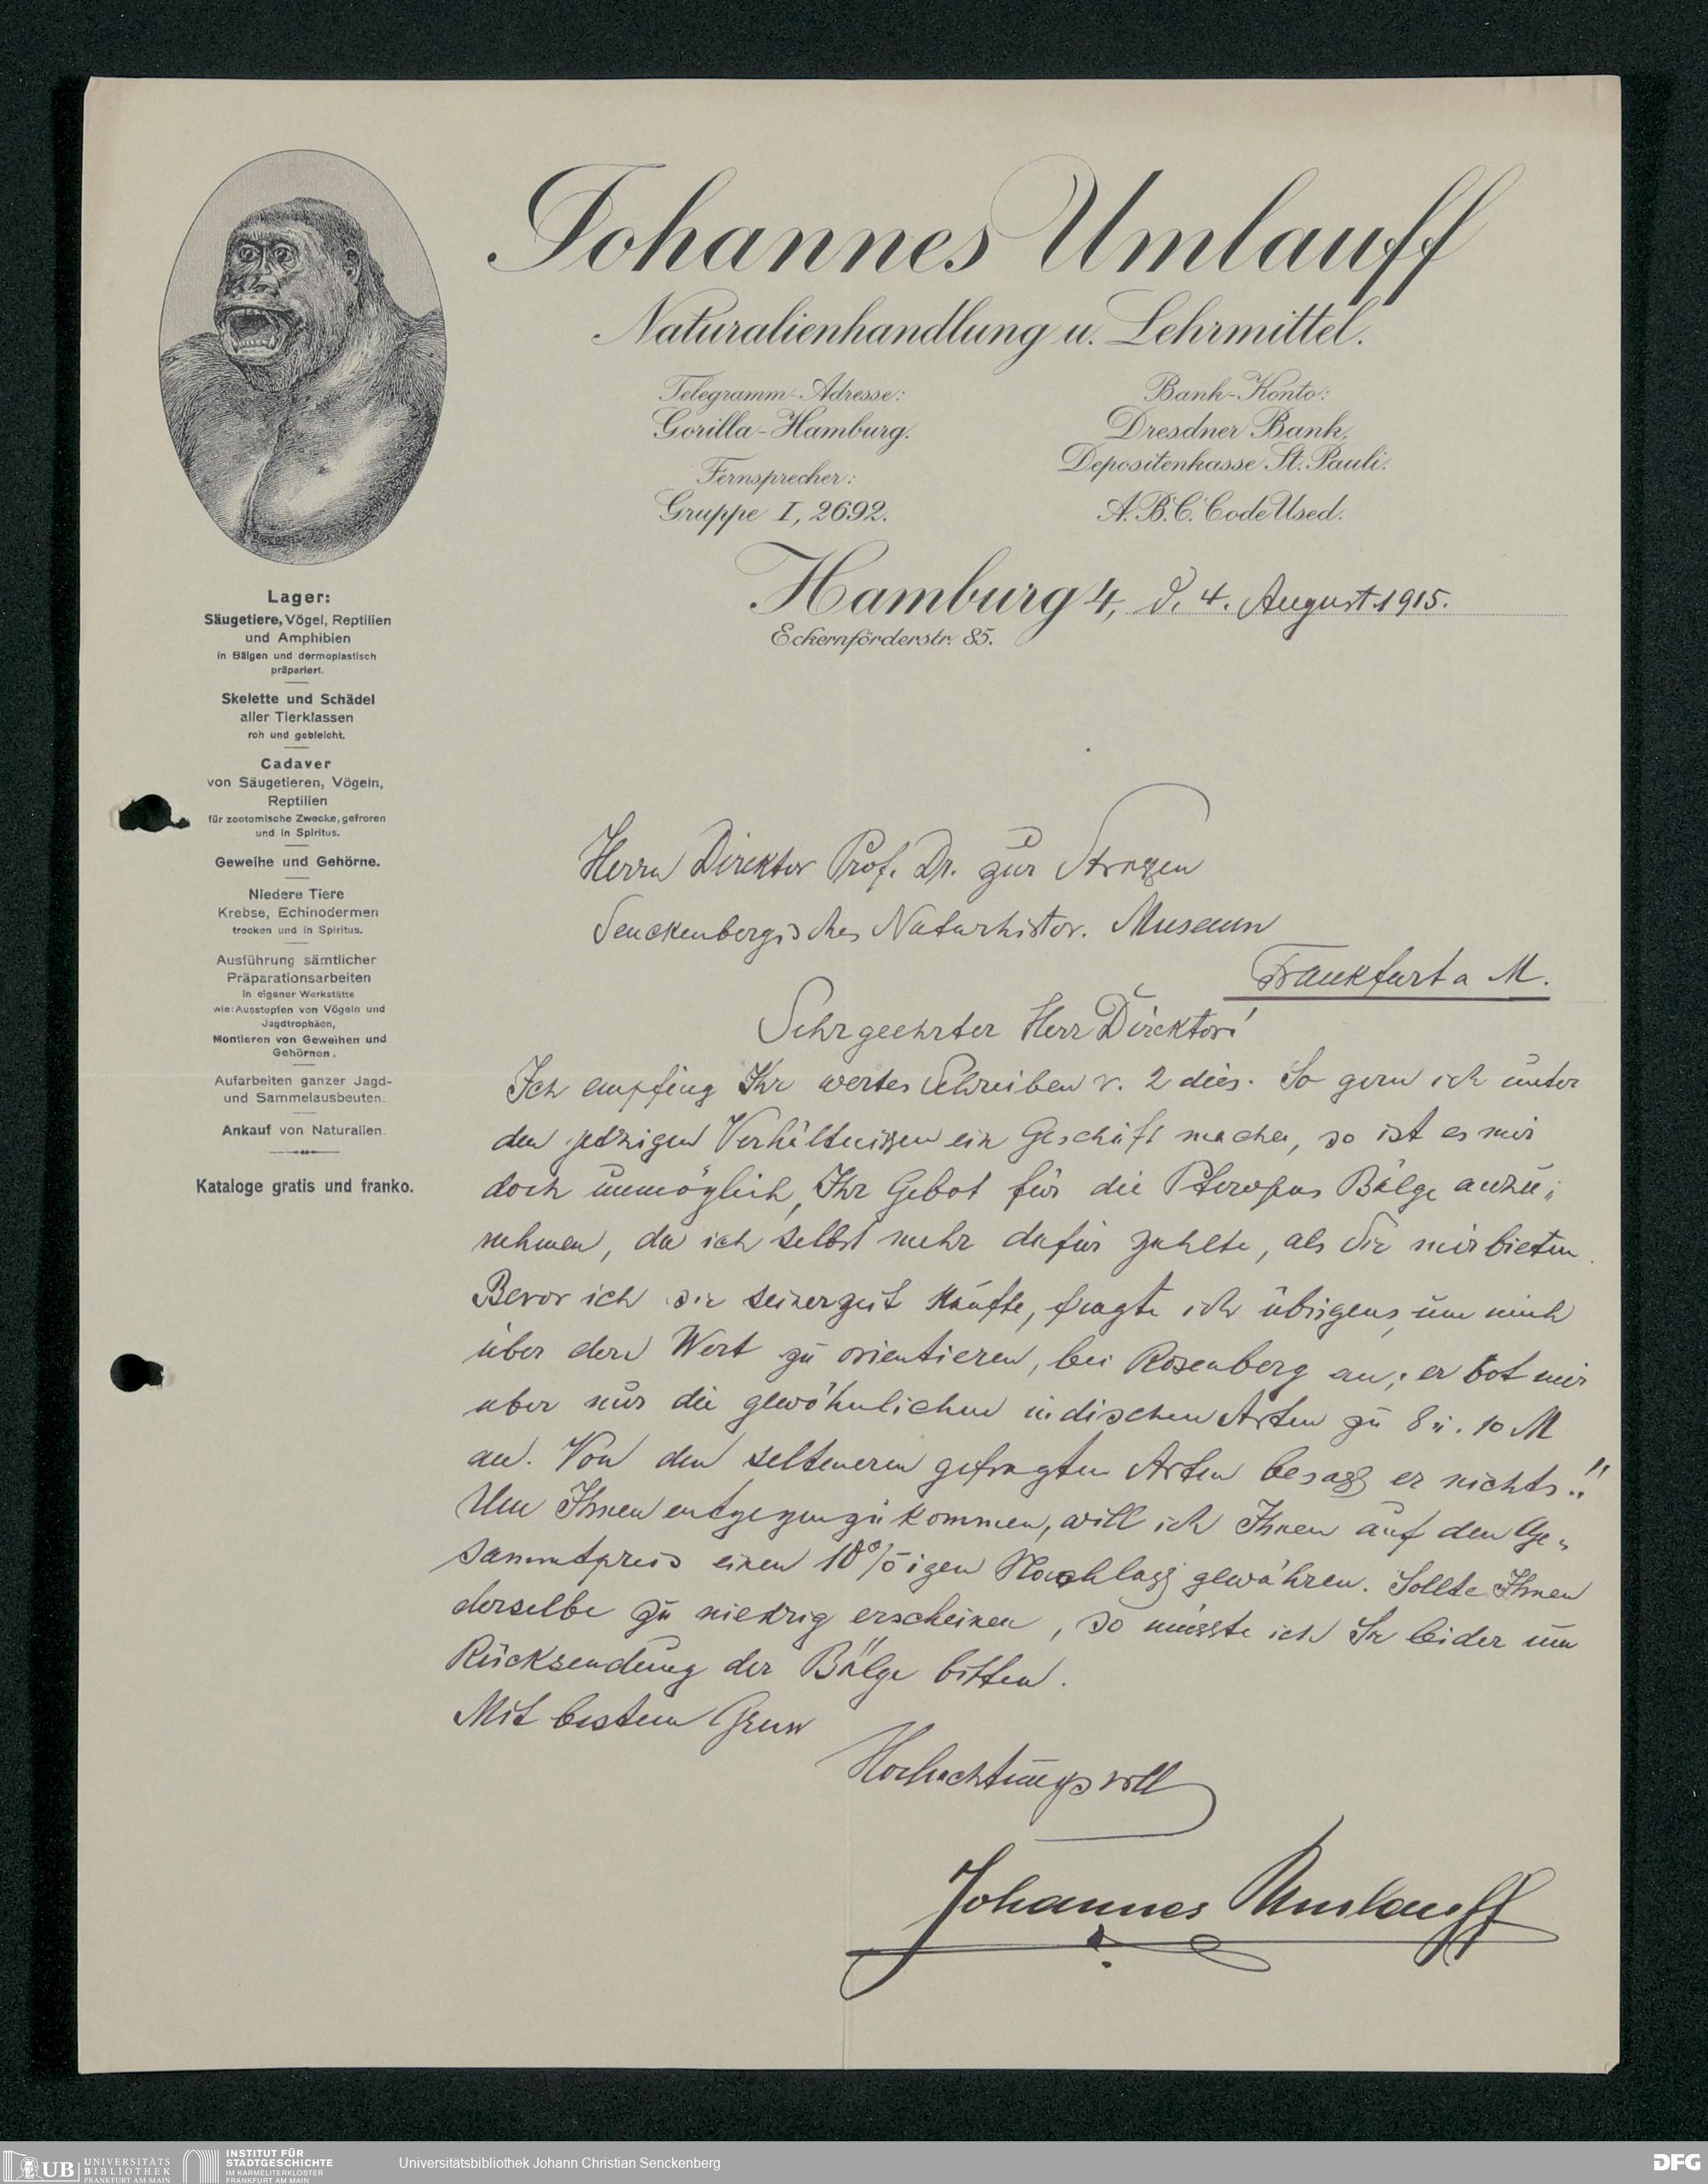 Johannes Umlauff
Naturalienhandlung u. Lehrmittel.
Telegramm-Adresse:
Gorilla-Hamburg.
Fernsprecher:
Gruppe I, 2692.
Bank-Konto:
Dresdner Bank,
Depositenkasse St. Pauli.
A.B.C. Code Used.
Hamburg 4, d. 4. August 1915.
Eckernförderstr. 85.
Lager:
Säugetiere, Vögel, Reptilien
und Amphibien
in Bälgen und dermoplastisch
präpariert.
Skelette und Schädel
aller Tierklassen
roh und gebleicht.
Cadaver
von Säugetieren, Vögeln,
Reptilien
für zootomische Zwecke, gefroren
und in Spiritus.
Geweihe und Gehörne.
Niedere Tiere
Krebse, Echinodermen
trocken und in Spiritus.
Ausführung sämtlicher
Präparationsarbeiten
in eigener Werkstätte
wie: Ausstopfen von Vögeln und
Jagdtrophäen,
Montieren von Geweihen und
Gehörnen.
Aufarbeiten ganzer Jagd-
und Sammelausbeuten.
Ankauf von Naturalien.
Kataloge gratis und franko.
Herrn Direktor Prof. Dr. zur Strassen
Senckenbergisches Naturhistor. Museum
Frankfurt a M.
Sehr geehrter Herr Direktor!
Ich empfing Ihr wertes Schreiben v. 2 dies. So gern ich unter
den jetzigen Verhältnissen ein Geschäft mache, so ist es mir
doch unmöglich, Ihr Gebot für die Pteropus Bälge anzu-
nehmen, da ich selbst mehr dafür zahlte, als Sie mir bieten.
Bevor ich sie seinerzeit kaufte, fragte ich übrigens, um mich
über den Wert zu orientieren, bei Rosenberg an; er bot mir
aber nur die gewöhnlichen indischen Arten zu 8 u. 10 M
an. Von den selteneren gefragten Arten besass er nichts!!
Um Ihnen entgegenzukommen, will ich Ihnen auf den Ge-
sammtpreis einen 10%igen Nachlass gewähren. Sollte Ihnen
derselbe zu niedrig erscheinen, so müsste ich Sie leider um
Rücksendung der Bälge bitten.
Mit bestem Gruss
Hochachtungsvoll
Johannes Umlauff
UB UNIVERSITÄTS
BIBLIOTHEK
FRANKFURT AM MAIN
INSTITUT FÜR
STADTGESCHICHTE
IM KARMELITERKLOSTER
FRANKFURT AM MAIN
Universitätsbibliothek Johann Christian Senckenberg
DFG